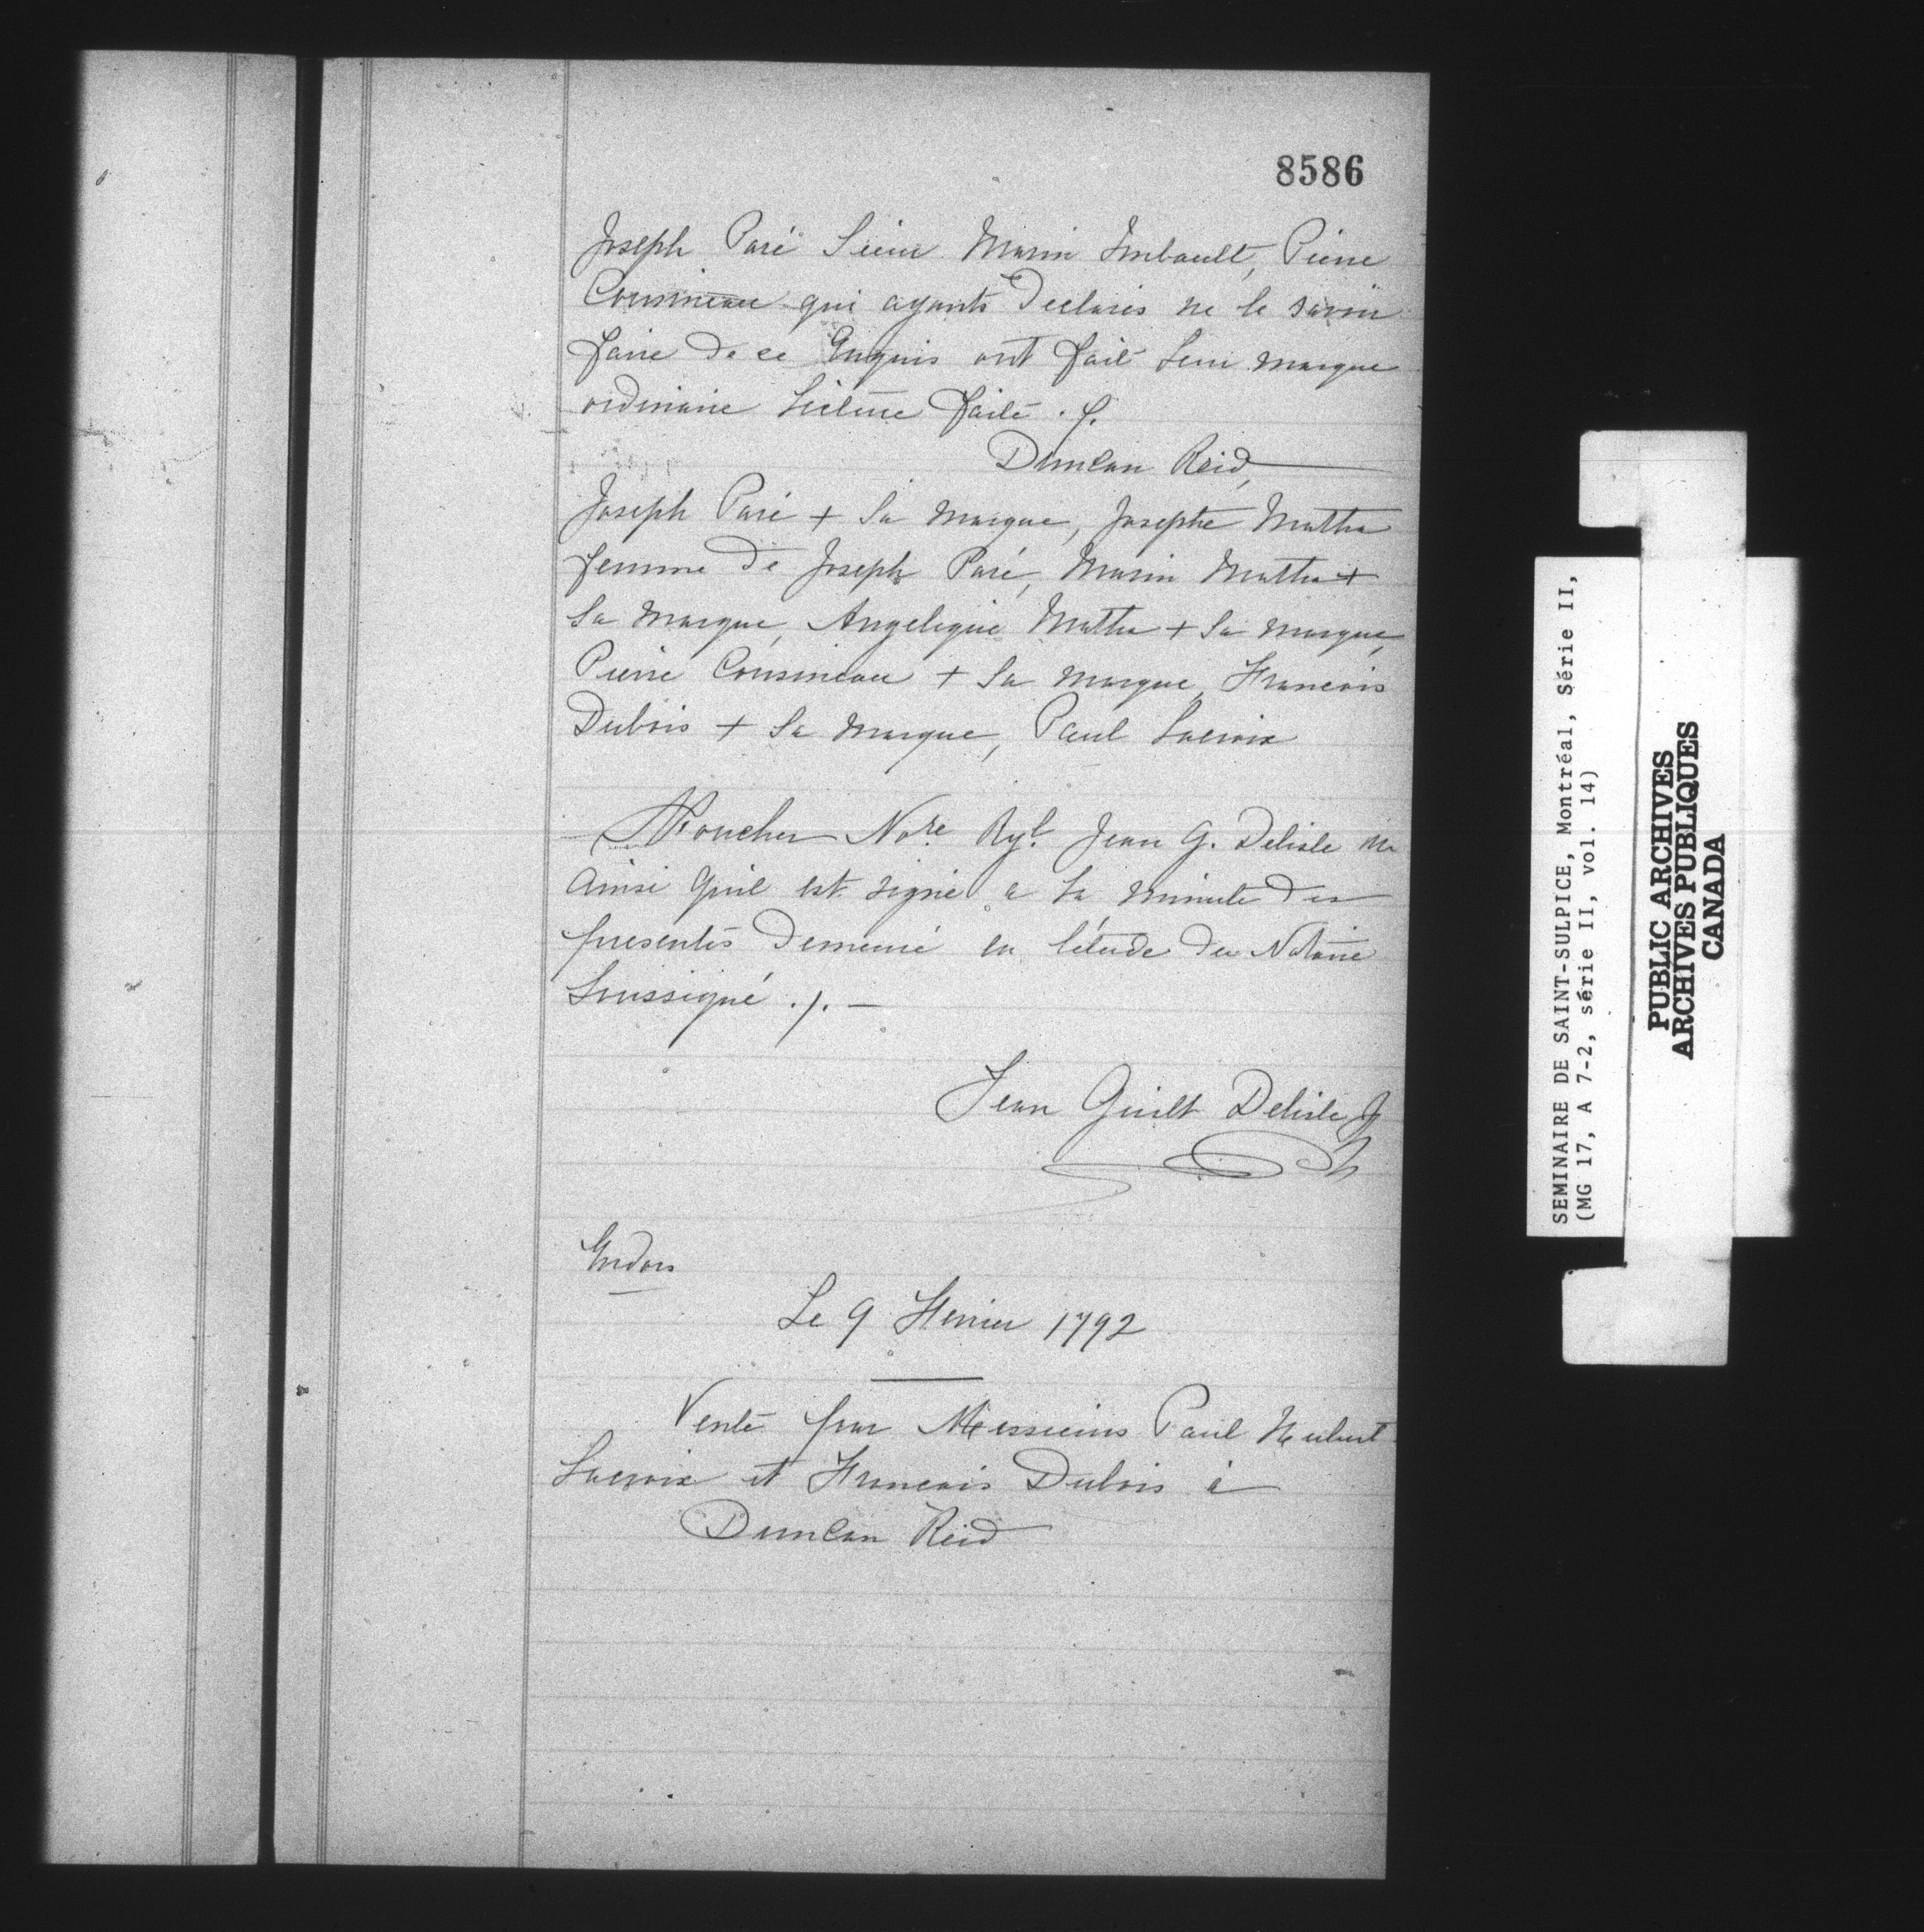 8586
Joseph Paré Sieur Marin Imbault, Pierre
Cousineau qui ayants Declarés ne le savoir
faire de ce Enquis ont fait leur marque
ordinaire Lecture faite ./.
Duncan Reid,
Joseph Paré + Sa marque, Josephte Matha
femme de Joseph Paré, Marin Matha +
Sa marque, Angelique Matha + Sa marque,
Pierre Cousineau + Sa marque, Francois
Dubois + Sa marque, Paul Lacroix
Foucher Nore Ryl Jean G. Delisle
Ainsi qu'il est signé a la minute des
presentes Demeuré en l'étude du Notaire
Soussigné ./. —
Jean Guilt Delisle
Endos
Le 9 Fevrier 1792
Vente par Messieurs Paul Hubert
Lacroix et Francois Dubois à
Duncan Reid
SEMINAIRE DE SAINT-SULPICE, Montréal, Série II,
(MG 17, A 7-2, série II, vol. 14)
PUBLIC ARCHIVES
ARCHIVES PUBLIQUES
CANADA